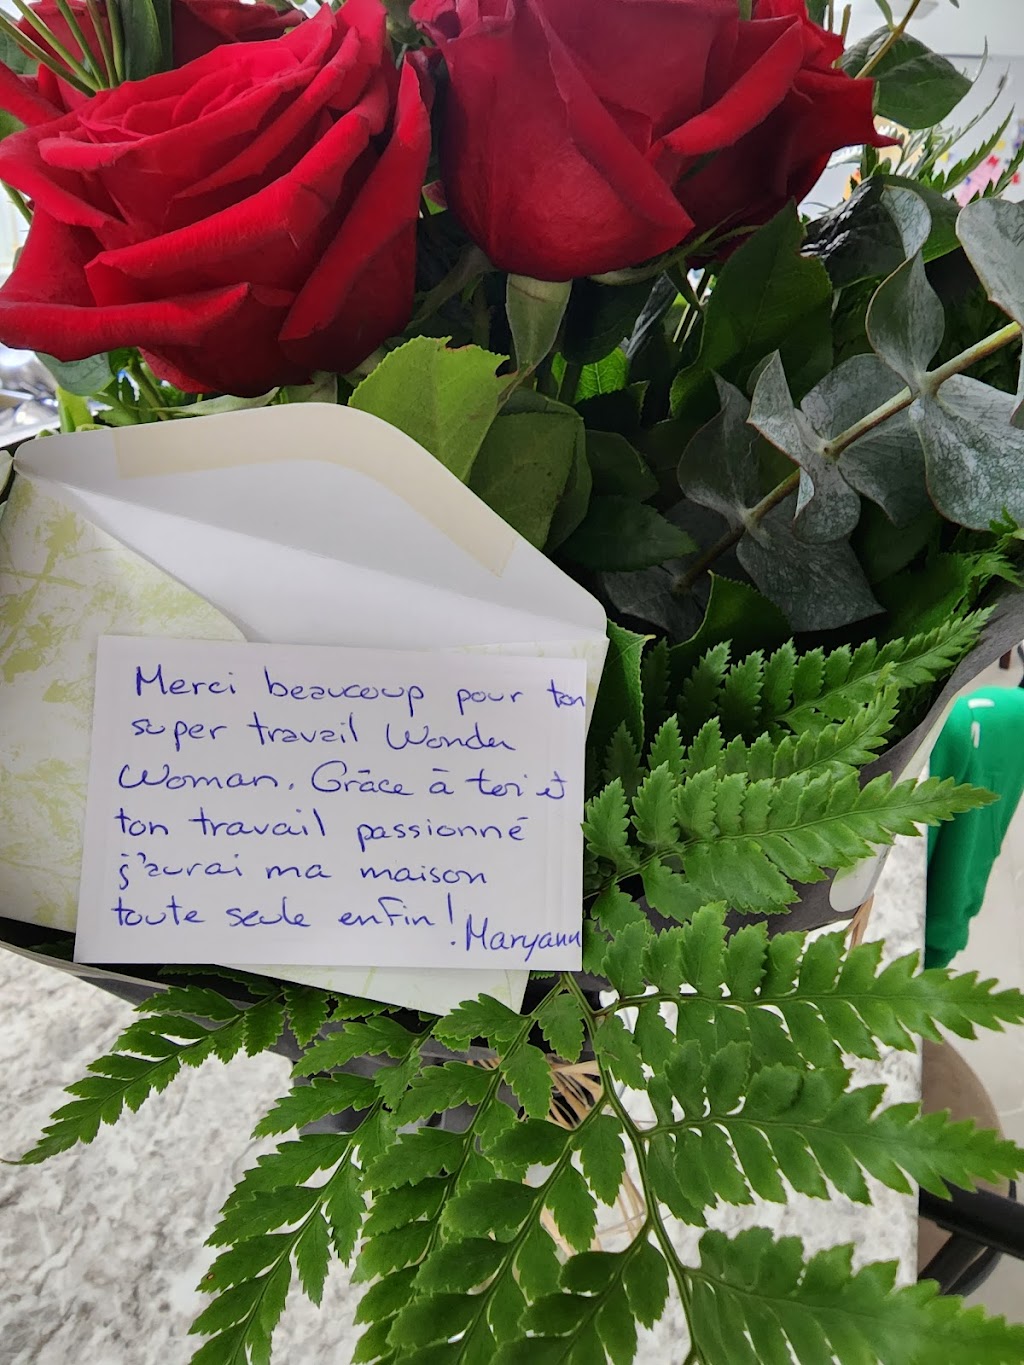 Merci beaucoup pour ton
super travail Wonder
Woman. Grâce à toi et
ton travail passionné
j'aurai ma maison
toute seule enfin!
Maryann